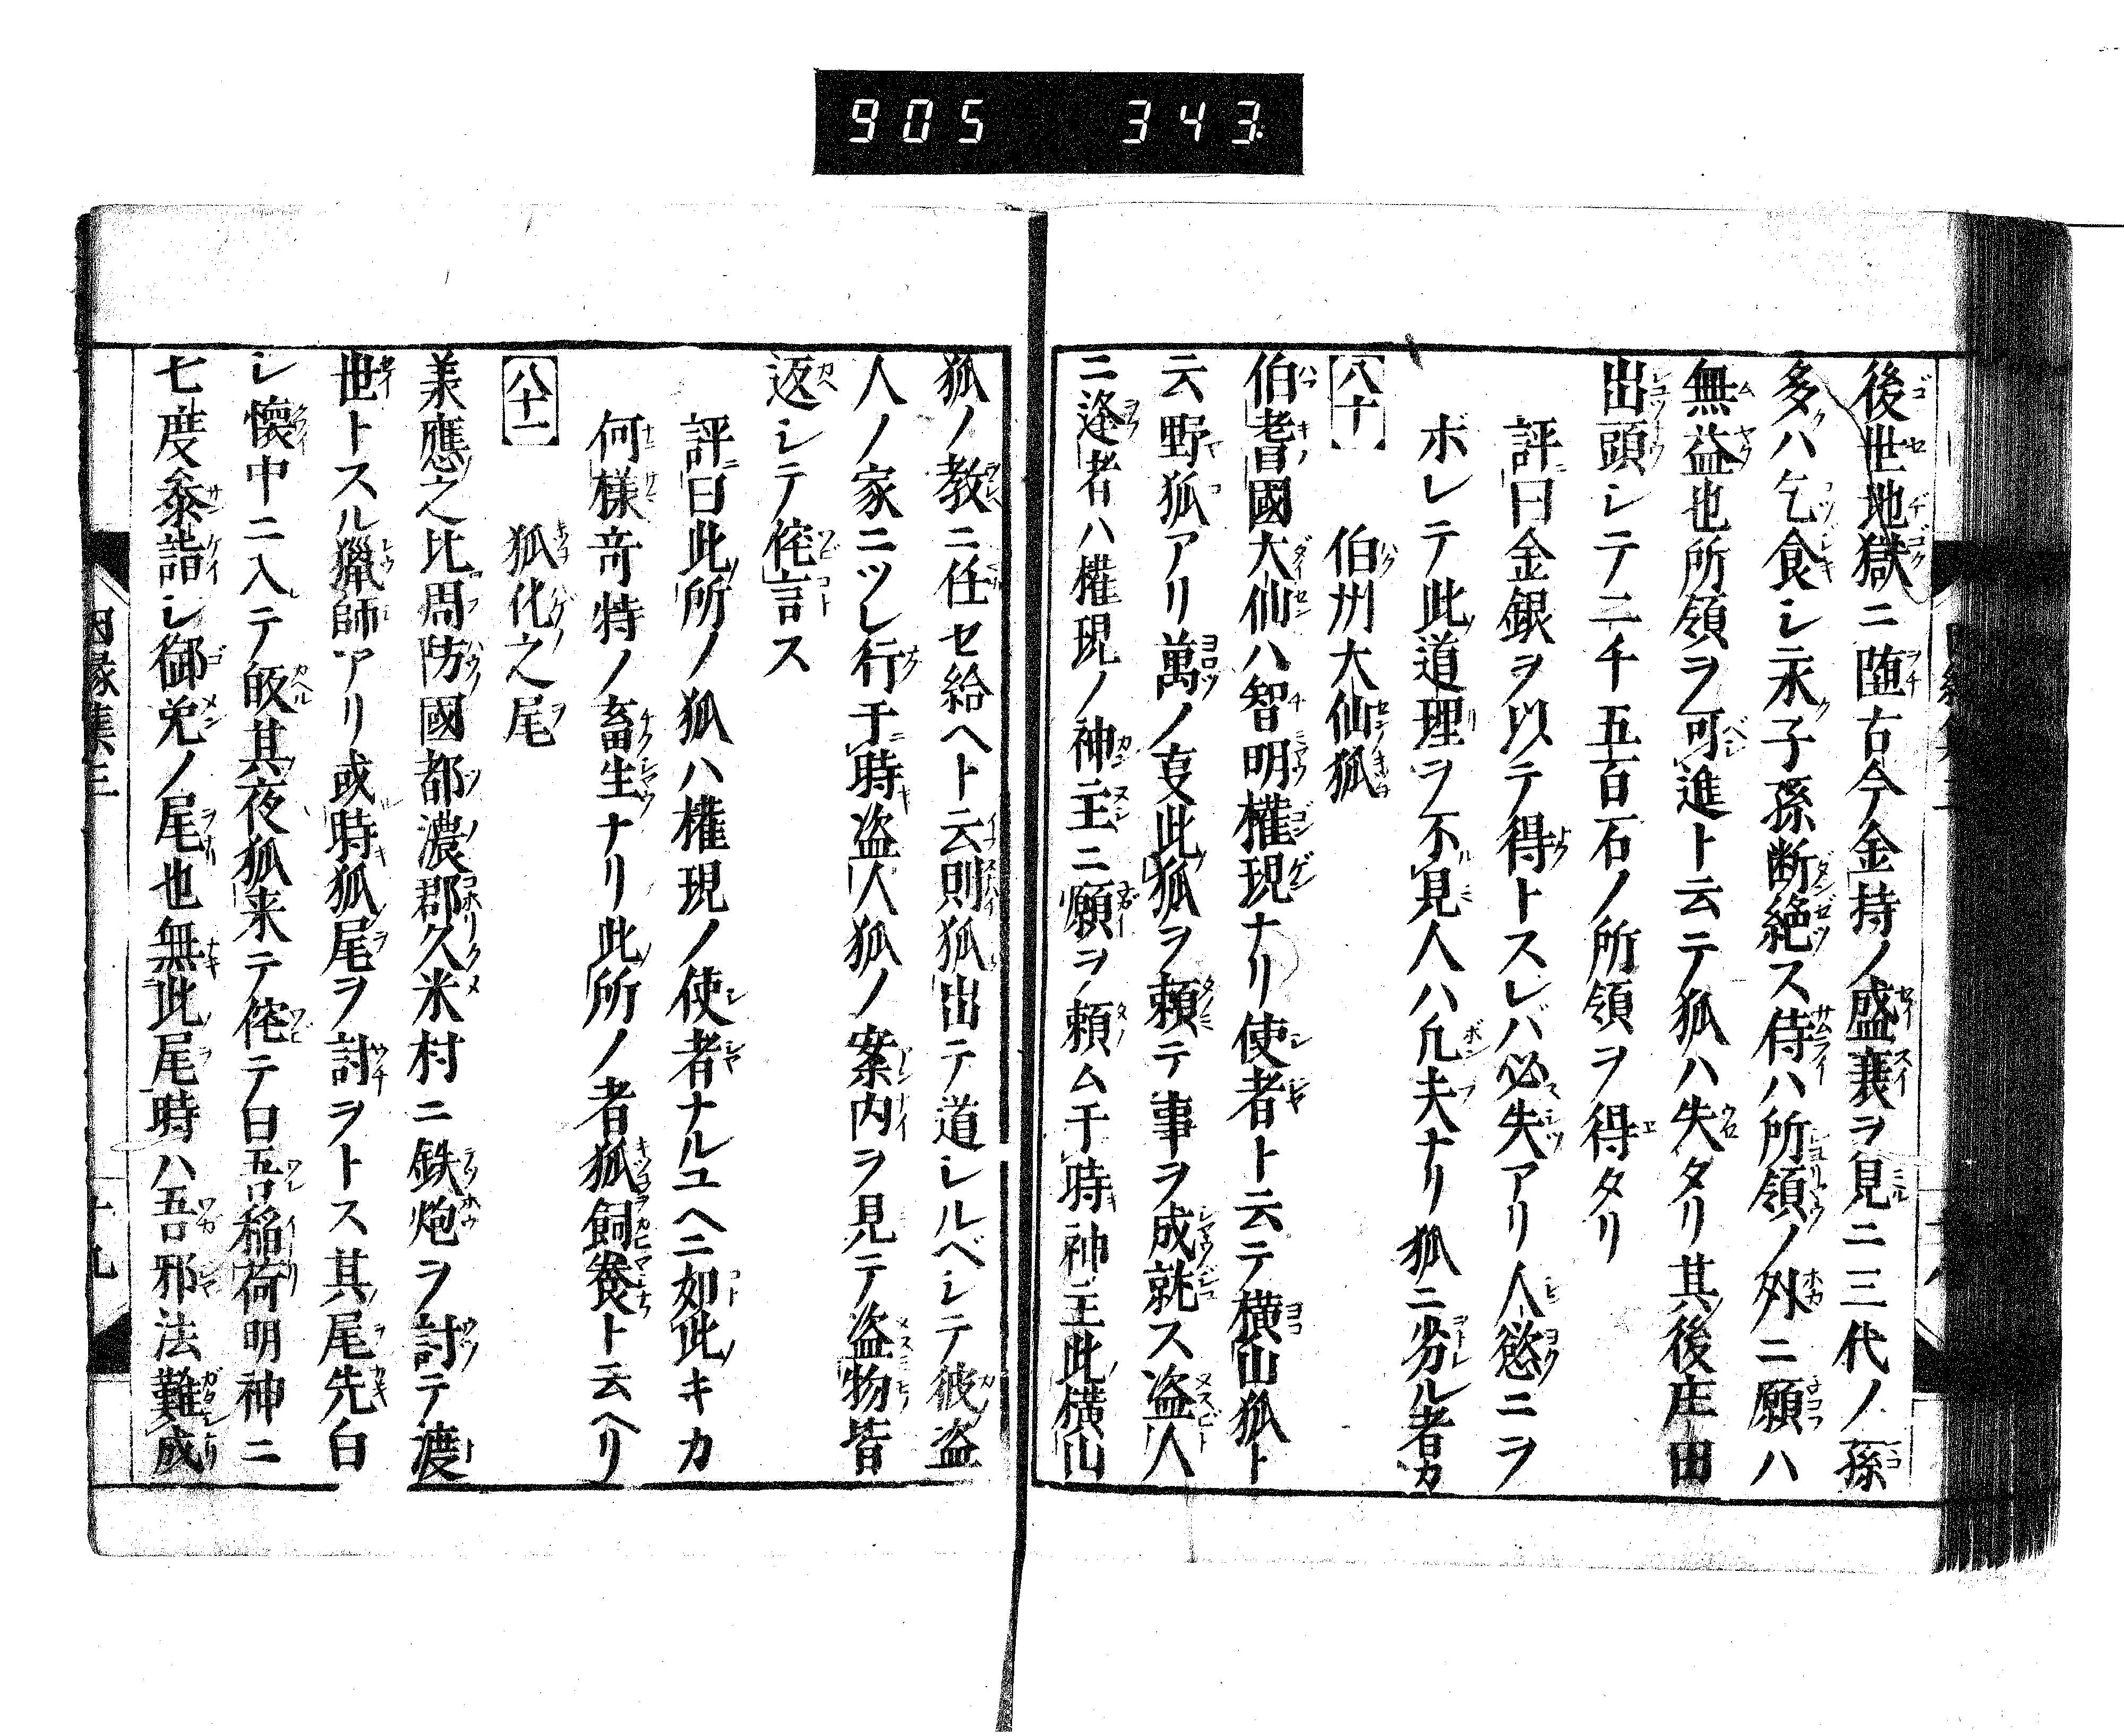 905 343
後世地獄ニ堕古今金持ノ盛衰ヲ見ニ三代ノ孫
多ハ乞食シ永子孫断絶ス侍ハ所領ノ外ニ願ハ
無益也所領ヲ可進ト云テ狐ハ失タリ其後庄田
出頭シテ二千五百石ノ所領ヲ得タリ
評曰金銀ヲ以テ得トスレバ必失アリ人慾ニヲ
ボレテ此道理ヲ不見人ハ凡夫ナリ狐ニ劣ル者カ
八十 伯州大仙狐
伯耆國大仙ハ智明權現ナリ使者ト云テ横山狐ト
云野狐アリ萬ノ叓此狐ヲ頼テ事ヲ成就ス盗人
ニ逢者ハ權現ノ神主ニ願ヲ頼ム于時神主此横山
狐ノ教ニ任セ給ヘト云則狐出テ道シルベシテ彼盗
人ノ家ニツレ行于時盗人狐ノ案内ヲ見テ盗物皆
返シテ侘言ス
評曰此所ノ狐ハ權現ノ使者ナルユヘニ如此キカ
何様竒特ノ畜生ナリ此所ノ者狐飼養ト云ヘリ
八十一 狐化之尾
美應之比周防國都濃郡久米村ニ鉄炮ヲ討テ渡
世トスル獵師アリ或時狐尾ヲ討ヲトス其尾先白
シ懐中ニ入テ皈其夜狐来テ侘テ曰吾稲荷明神ニ
七度叅詣シ御免ノ尾也無此尾時ハ吾邪法難成
因縁集三
十九